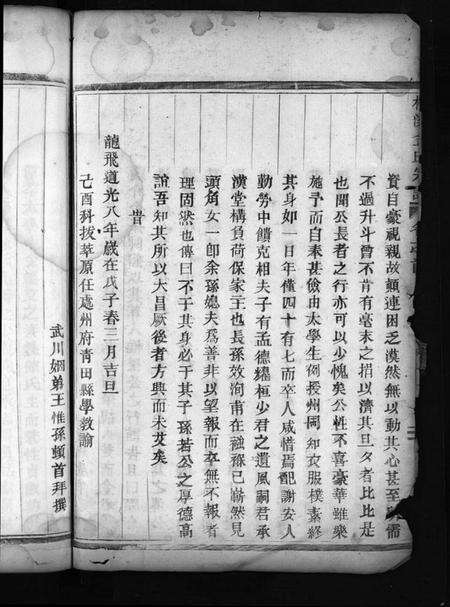 貲自豪視親故顛連困乏漠然無以動其心甚至所需
不過升斗曾不肯有毫末之捐以濟其旦夕者比比是
也聞公長者之行亦可以少愧矣公性不喜豪華雖樂
施予而自奉甚儉由太學生例授州同知衣服樸素終
其身如一日年僅四十有七而卒人咸惜焉配謝安人
勤勞中饋克相夫子有孟德耀桓少君之遺風嗣君承
漢堂構負荷保家主也長孫效洵甫在襁褓已嶄然見
頭角女一卽余孫媳夫爲善非以望報而卒無不報者
理固然也傳曰不于其身必于其子孫若公之厚德高
誼吾知其所以大昌厥後者方興而未艾矣
旹
龍飛道光八年歲在戊子春三月吉旦
己酉科拔萃原任處州府青田縣學敎諭
武川姻弟王惟孫頓首拜撰